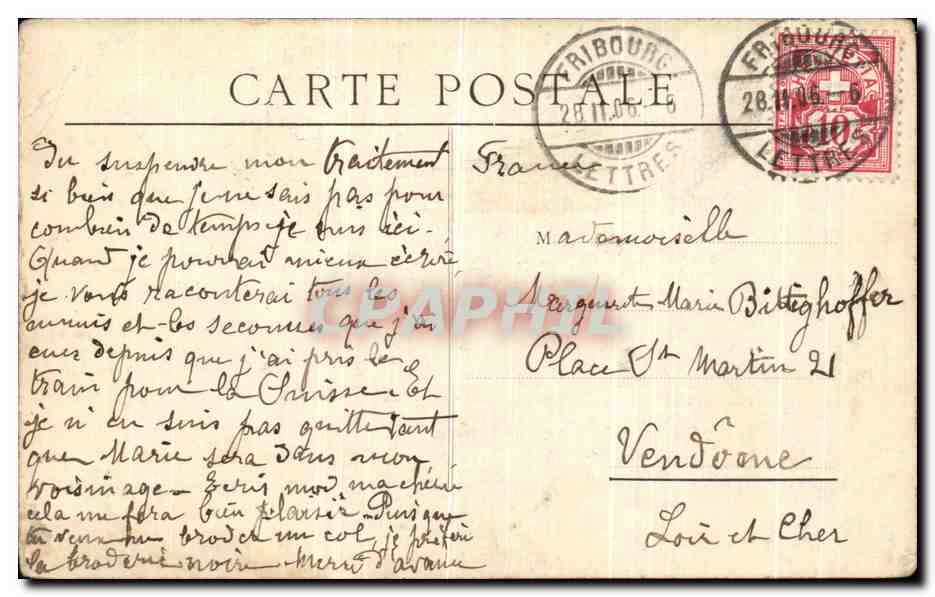 CARTE POSTALE
FRIBOURG
28.II.06. - 6
LETTRES
FRIBOURG
28.II.06. - 6
LETTRES
10
du suspendre mon traitement
si bien que je ne sais pas pour
combien de temps je suis ici.
Quand je pourrai mieux écrire
je vous raconterai tous les
ennuis et les secousses que j'ai
eues depuis que j'ai pris le
train pour la Suisse. Et
je n'en suis pas quitte tant
que Marie sera dans mon
voisinage. Ecris moi ma chérie
cela me fera bien plaisir. Puisque
tu veux me broder un col, je préfère
la broderie noire. Merci d'avance
France
Mademoiselle
Marguerit Marie Bitteghoffer
Place St Martin 21
Vendôme
Loir et Cher
CPAPHIL